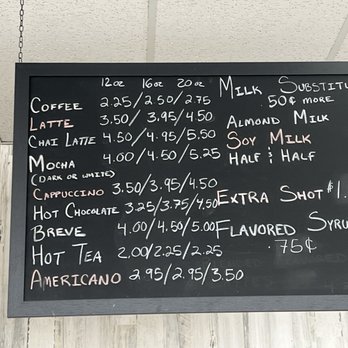 12oz 16oz 20oz
COFFEE 2.25/2.50/2.75
LATTE 3.50/3.95/4.50
CHAI LATTE 4.50/4.95/5.50
MOCHA 4.00/4.50/5.25
(DARK OR WHITE)
CAPPUCCINO 3.50/3.95/4.50
HOT CHOCOLATE 3.25/3.75/4.50
BREVE 4.00/4.50/5.00
HOT TEA 2.00/2.25/2.25
AMERICANO 2.95/2.95/3.50
MILK SUBSTITU
50¢ MORE
ALMOND MILK
SOY MILK
HALF & HALF
EXTRA SHOT $1.
FLAVORED SYRU
.75¢